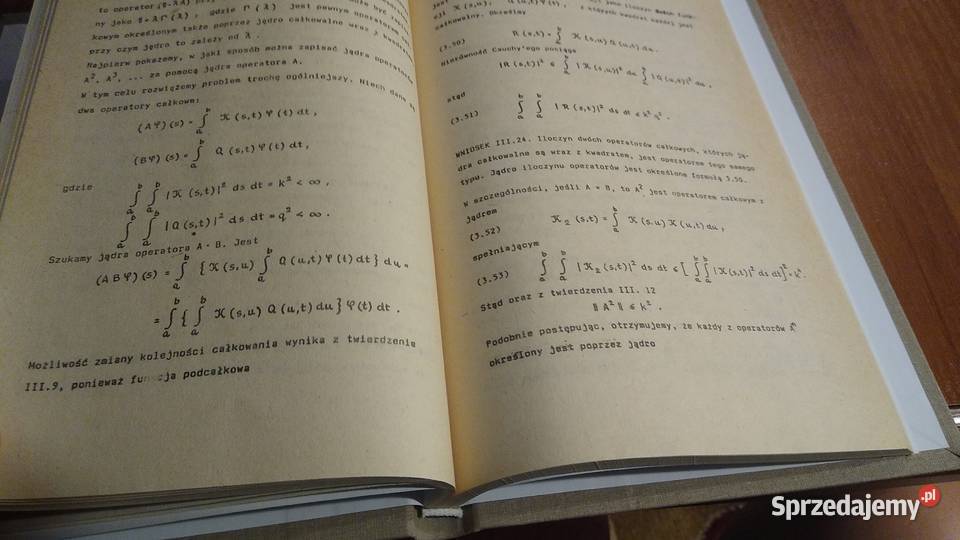 to operator
ny jako B = λΓ(λ), gdzie Γ(λ) jest pewnym operatorem
kowym określonym także poprzez jądro całkowalne wraz z kwadratem
przy czym jądro to zależy od λ.
Najpierw pokażemy, w jaki sposób można zapisać jądra operatorów
A², A³, ... za pomocą jądra operatora A.
W tym celu rozwiążemy problem trochę ogólniejszy. Niech dane są
dwa operatory całkowe:
(Aφ)(s) = ∫_a^b K(s,t)φ(t)dt,
(Bφ)(s) = ∫_a^b Q(s,t)φ(t)dt,
gdzie
∫_a^b ∫_a^b |K(s,t)|² ds dt = k² < ∞,
∫_a^b ∫_a^b |Q(s,t)|² ds dt = q² < ∞.
Szukamy jądra operatora A·B. Jest
(ABφ)(s) = ∫_a^b {K(s,u) ∫_a^b Q(u,t)φ(t)dt} du =
= ∫_a^b {∫_a^b K(s,u) Q(u,t)du} φ(t)dt.
Możliwość zmiany kolejności całkowania wynika z twierdzenia
III.9, ponieważ funkcja podcałkowa
całkowalny. Określmy
(3.50) R(s,t) = ∫_a^b K(s,u) Q(u,t)du.
Nierówność Cauchy'ego pociąga
|R(s,t)|² ≤ ∫_a^b |K(s,u)|² du ∫_a^b |Q(u,t)|² du,
stąd
(3.51) ∫_a^b ∫_a^b |R(s,t)|² ds dt ≤ k² q².
WNIOSEK III.24. Iloczyn dwóch operatorów całkowych, których ją-
dra całkowalne są wraz z kwadratem, jest operatorem tego samego
typu. Jądro iloczynu operatorów jest określone formułą 3.50.
W szczególności, jeśli A = B, to A² jest operatorem całkowym z
jądrem
(3.52) K₂(s,t) = ∫_a^b K(s,u)K(u,t)du,
spełniającym
(3.53) ∫_a^b ∫_a^b |K₂(s,t)|² ds dt ≤ [∫_a^b ∫_a^b |K(s,t)|² ds dt]² = k⁴.
Stąd oraz z twierdzenia III. 12
‖A²‖ ≤ k².
Podobnie postępując, otrzymujemy, że każdy z operatorów
określony jest poprzez jądro
Sprzedajemy.pl